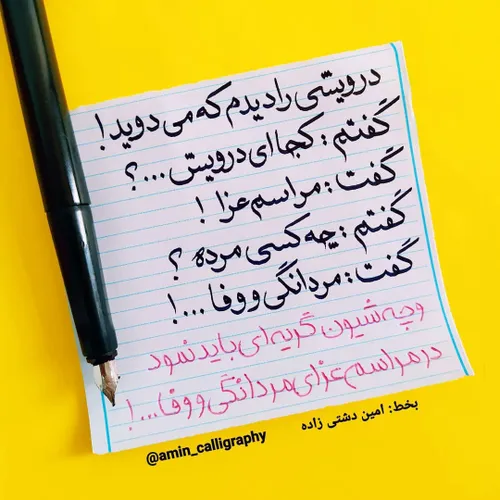 درویشی را دیدم که می دوید!
گفتم: کجا ای درویش...؟
گفت: مراسم عزا!
گفتم: چه کسی مرده؟
گفت: مردانگی و وفا...!
وچه شیون گریه ای باید نمود
در مراسم عزای مردانگی و وفا...!
بخط: امین دشتی زاده
@amin_calligraphy